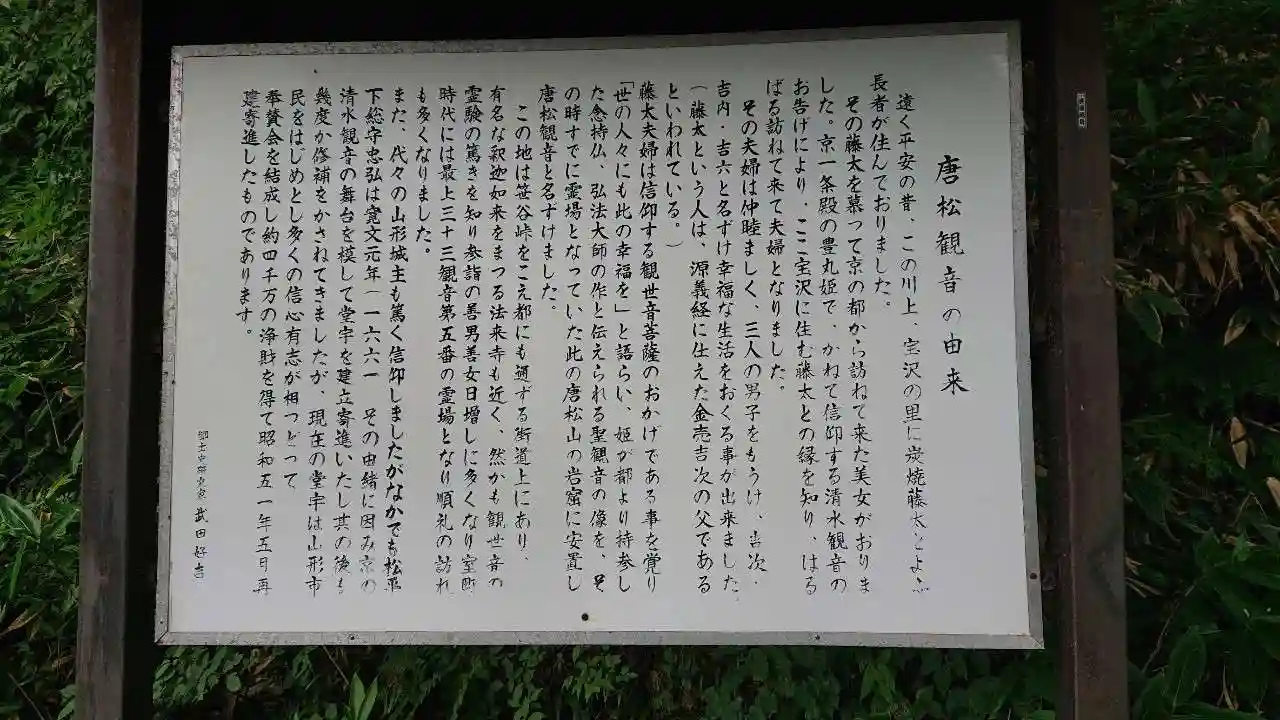 唐松観音の由来
遠く平安の昔、この川上、宝沢の里に炭焼藤太とよぶ
長者が住んでおりました。
その藤太を慕って京の都から訪ねて来た美女がおりま
した。京一条殿の豊丸姫で、かねて信仰する清水観音の
お告げにより、ここ宝沢に住む藤太との縁を知り、はる
ばる訪ねて来て夫婦となりました。
その夫婦は仲睦ましく、三人の男子をもうけ、吉次、
吉内・吉六と名ずけ幸福な生活をおくる事が出来ました。
(藤太という人は、源義経に仕えた金売吉次の父である
といわれている。)
藤太夫婦は信仰する観世音菩薩のおかげである事を覚り
「世の人々にも此の幸福を」と語らい、姫が都より持参し
た念持仏、弘法大師の作と伝えられる聖観音の像を、そ
の時すでに霊場となっていた此の唐松山の岩窟に安置し
唐松観音と名ずけました。
この地は笹谷峠をこえ都にも通ずる街道上にあり、
有名な釈迦如来をまつる法来寺も近く、然かも観世音の
霊験の篤きを知り参詣の善男善女日増しに多くなり室町
時代には最上三十三観音第五番の霊場となり順礼の訪れ
も多くなりました。
また、代々の山形城主も篤く信仰しましたがなかでも松平
下総守忠弘は寛文元年(一六六一 その由緒に因み京の
清水観音の舞台を模して堂宇を建立寄進いたし其の後も
幾度か修補をかさねてきましたが、現在の堂宇は山形市
民をはじめとし多くの信心有志が相つどって
奉賛会を結成し約四千万の浄財を得て昭和五一年五月再
建寄進したものであります。
郷土史研究家 武田好吉